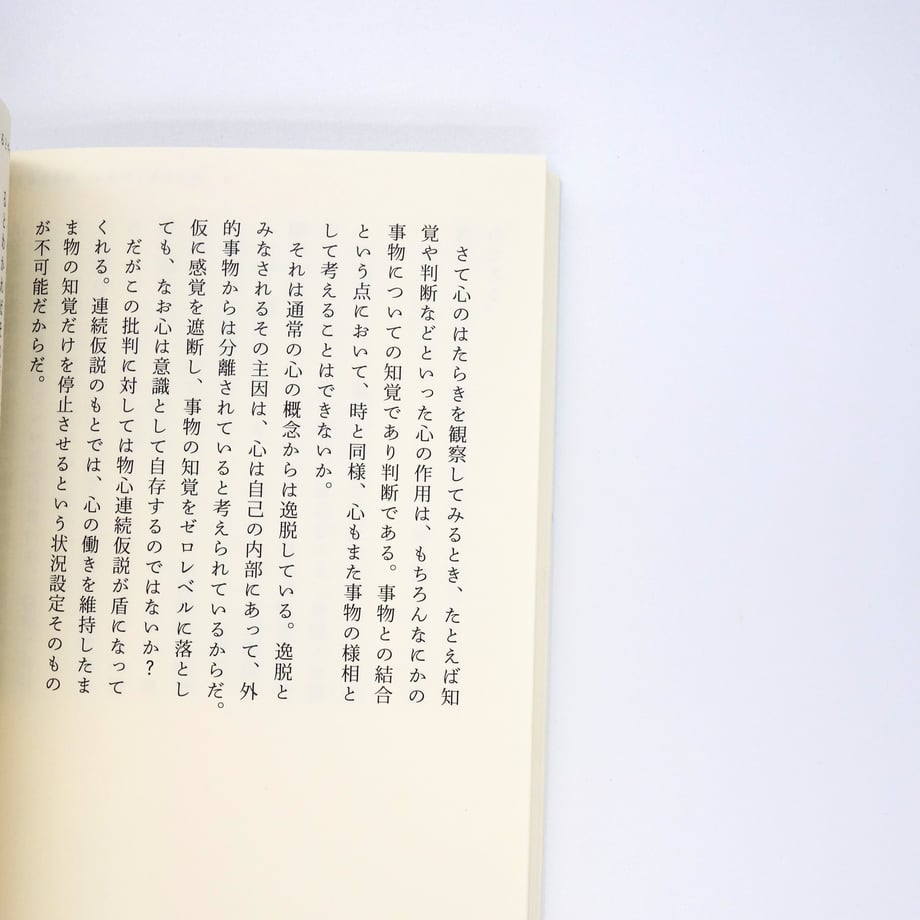 さて心のはたらきを観察してみるとき、たとえば知
覚や判断などといった心の作用は、もちろんなにかの
事物についての知覚であり判断である。事物との結合
という点において、時と同様、心もまた事物の様相と
して考えることはできないか。
それは通常の心の概念からは逸脱している。逸脱と
みなされるその主因は、心は自己の内部にあって、外
的事物からは分離されていると考えられているからだ。
仮に感覚を遮断し、事物の知覚をゼロレベルに落とし
ても、なお心は意識として自存するのではないか？
だがこの批判に対しては物心連続仮説が盾になって
くれる。連続仮説のもとでは、心の働きを維持したま
ま物の知覚だけを停止させるという状況設定そのもの
が不可能だからだ。